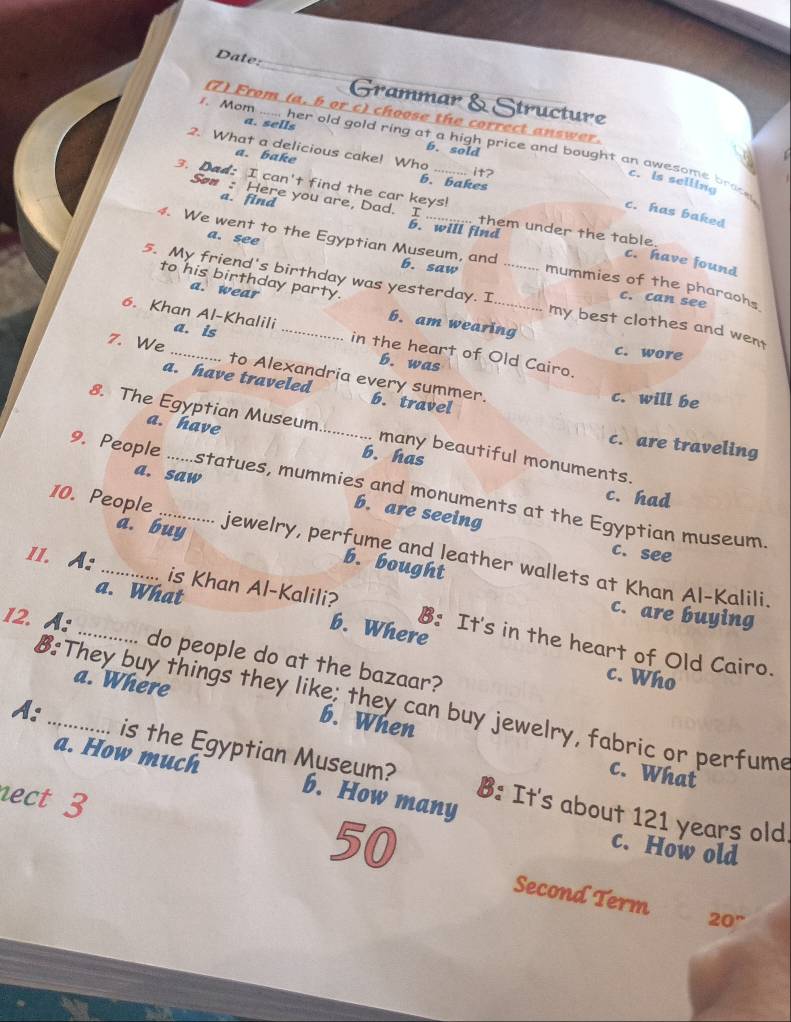 Date:
Grammar & Structure
(7) From (a, b or c) choose the correct answer.
1. Mom ...... her old gold ring at a high price and bought an awesome
a. sells b. sold c. is selling
2. What a delicious cake! Who ........ it?
a. bake b. bakes c. has baked
3. Dad: I can't find the car keys!
Son : Here you are, Dad. I ........... them under the table.
a. find b. will find c. have found
4. We went to the Egyptian Museum, and ........ mummies of the pharaohs.
a. see b. saw c. can see
5. My friend's birthday was yesterday. I............ my best clothes and went
to his birthday party.
a. wear b. am wearing c. wore
6. Khan Al-Khalili .............. in the heart of Old Cairo.
a. is b. was c. will be
7. We ............ to Alexandria every summer.
a. have traveled b. travel c. are traveling
8. The Egyptian Museum............ many beautiful monuments.
a. have b. has c. had
9. People ......statues, mummies and monuments at the Egyptian museum.
a. saw b. are seeing c. see
10. People ............ jewelry, perfume and leather wallets at Khan Al-Kalili.
a. buy b. bought c. are buying
11. A: ............. is Khan Al-Kalili? B: It's in the heart of Old Cairo.
a. What b. Where c. Who
12. A: ............. do people do at the bazaar?
B:They buy things they like; they can buy jewelry, fabric or perfume
a. Where b. When c. What
A: ............. is the Egyptian Museum? B: It's about 121 years old.
a. How much b. How many c. How old
nect 3
50
Second Term
20